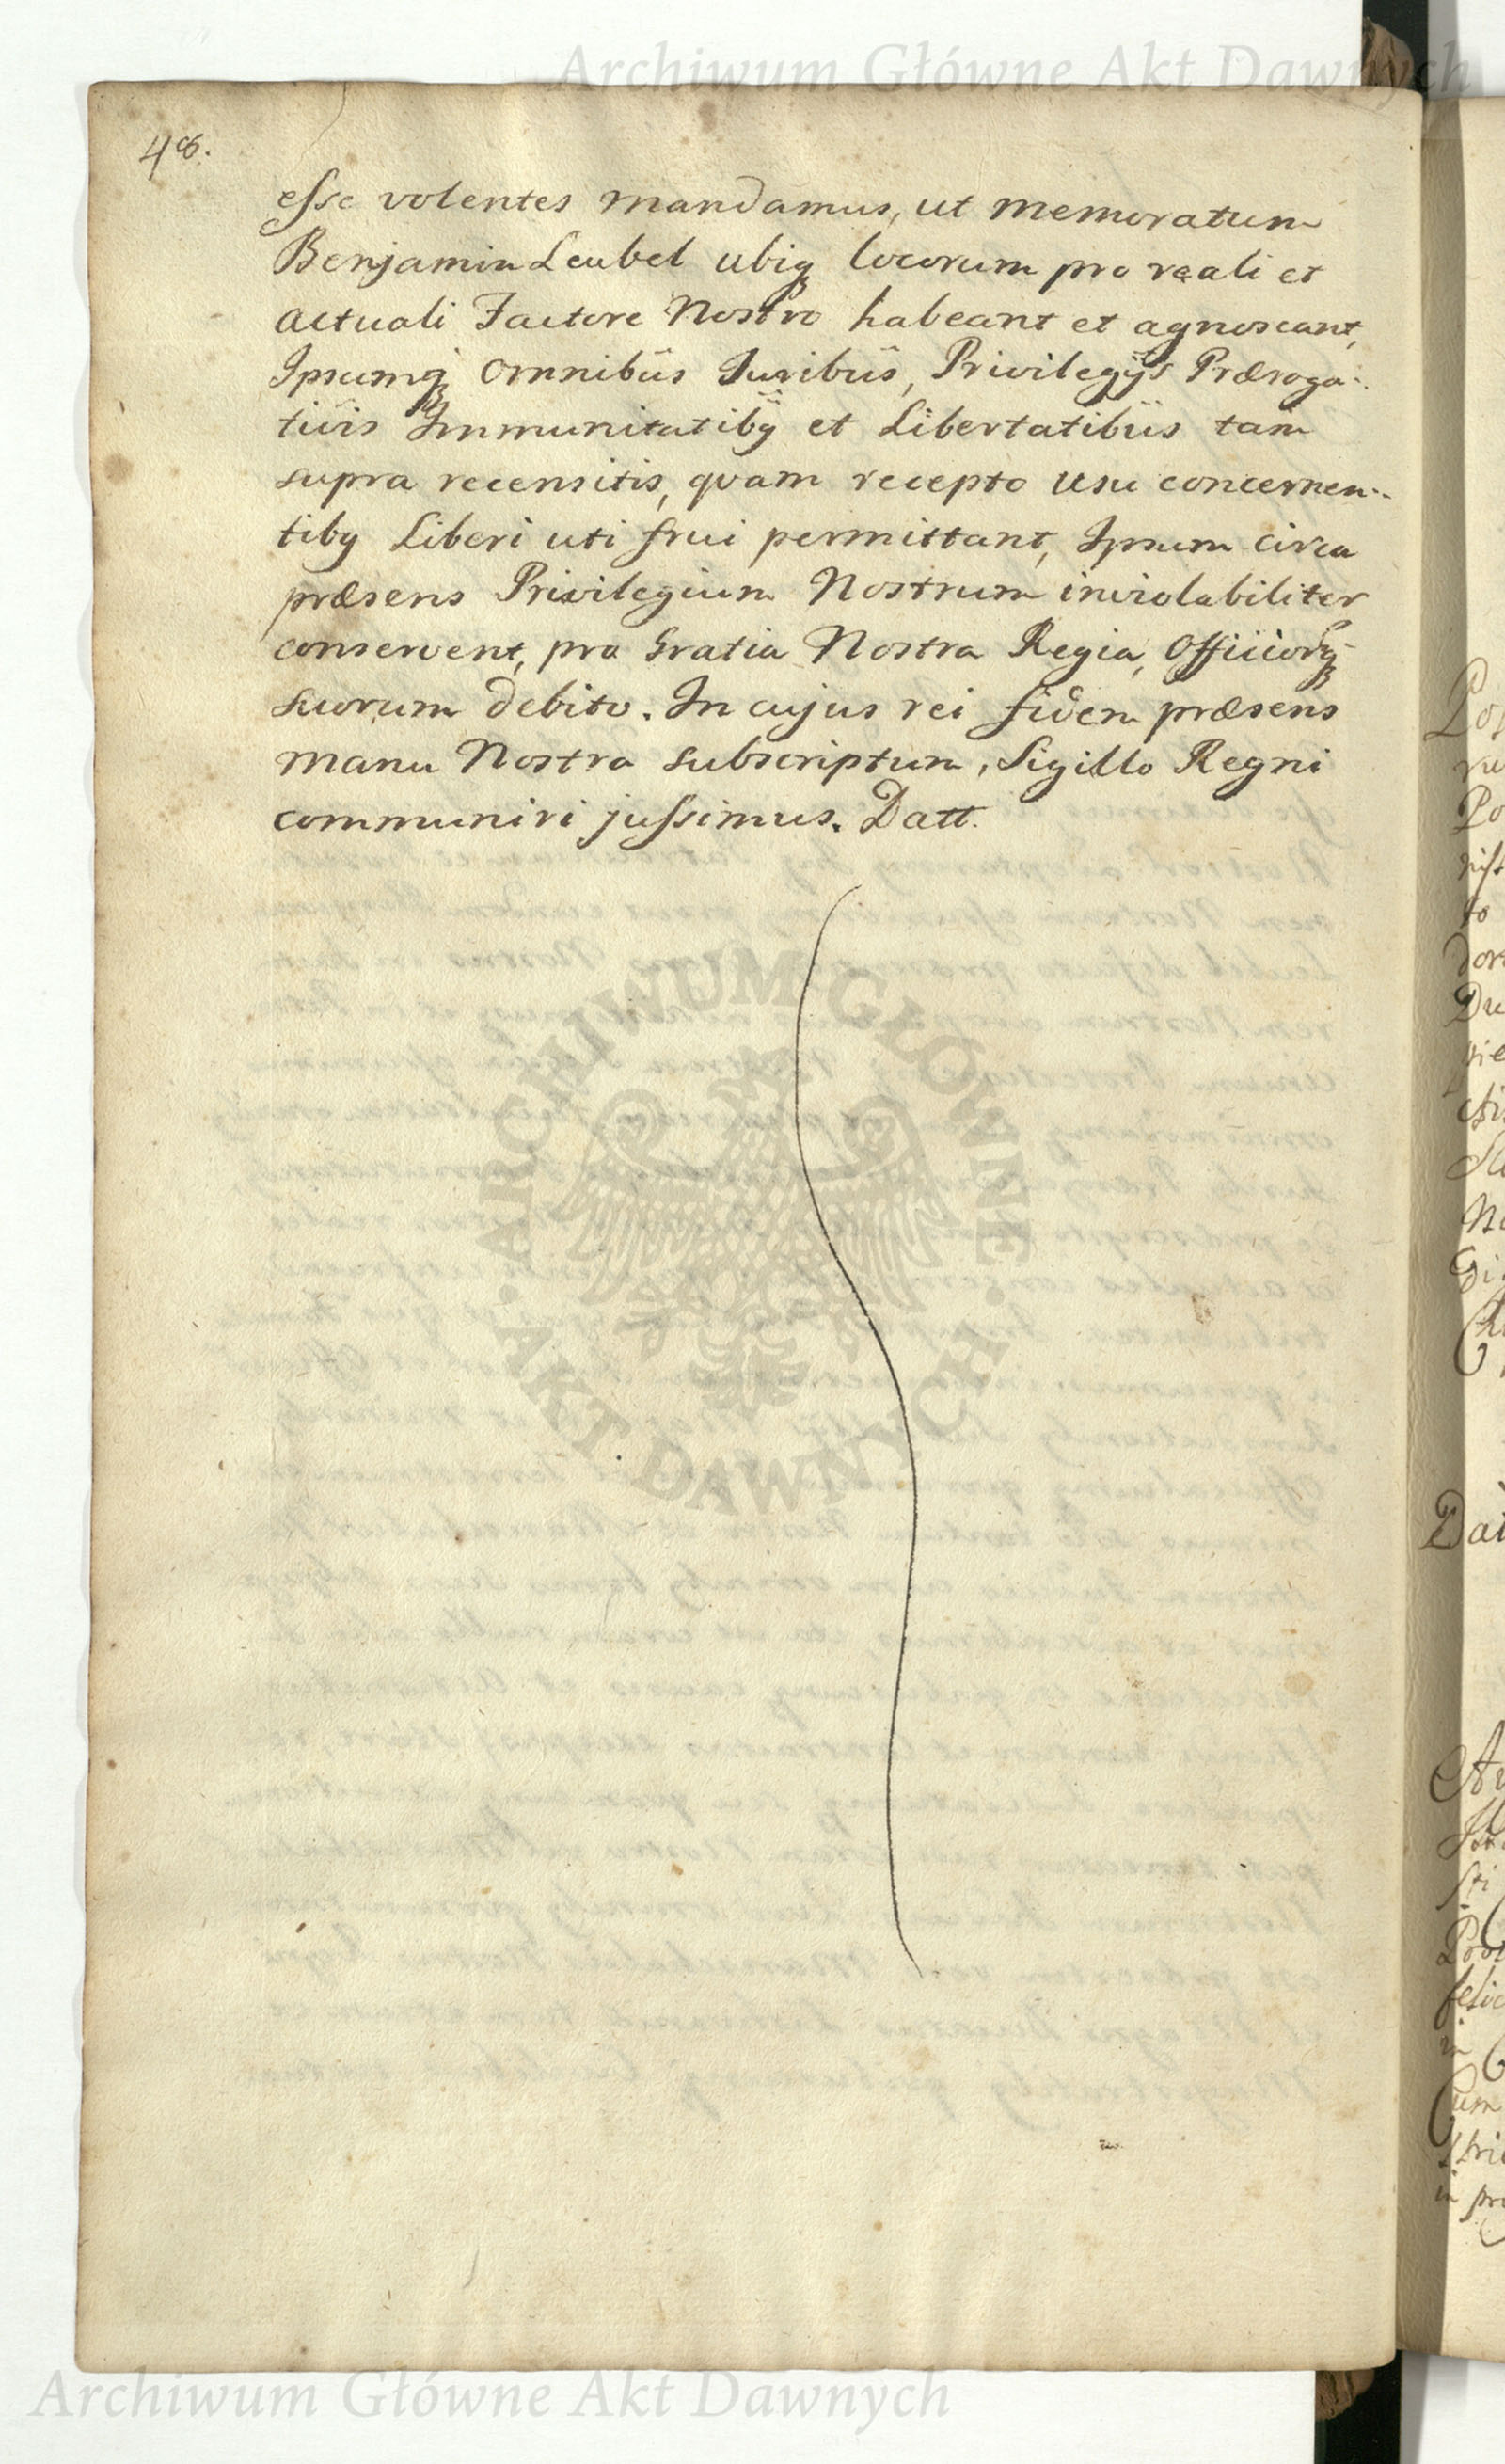 Archiwum Główne Akt Dawnych
48.
esse volentes mandamus, ut memoratum
Benjamin Leubel ubiq locorum pro reali et
actuali Factore Nostro habeant et agnoscant,
Ipsumq omnibus Juribus, Privilegijs Præroga:
tivis Immunitatibq et Libertatibus tam
supra recensitis, quam recepto usu concernen:
tibq Liberi uti frui permittant, Ipsum circa
præsens Privilegium Nostrum inviolabiliter
conservent, pro Gratia Nostra Regia, Officiorq
suorum debito. In cujus rei fidem præsens
manu Nostra subscriptum, Sigillo Regni
communiri jussimus. Datt.
ARCHIWUM GŁÓWNE
AKT DAWNYCH
Archiwum Główne Akt Dawnych